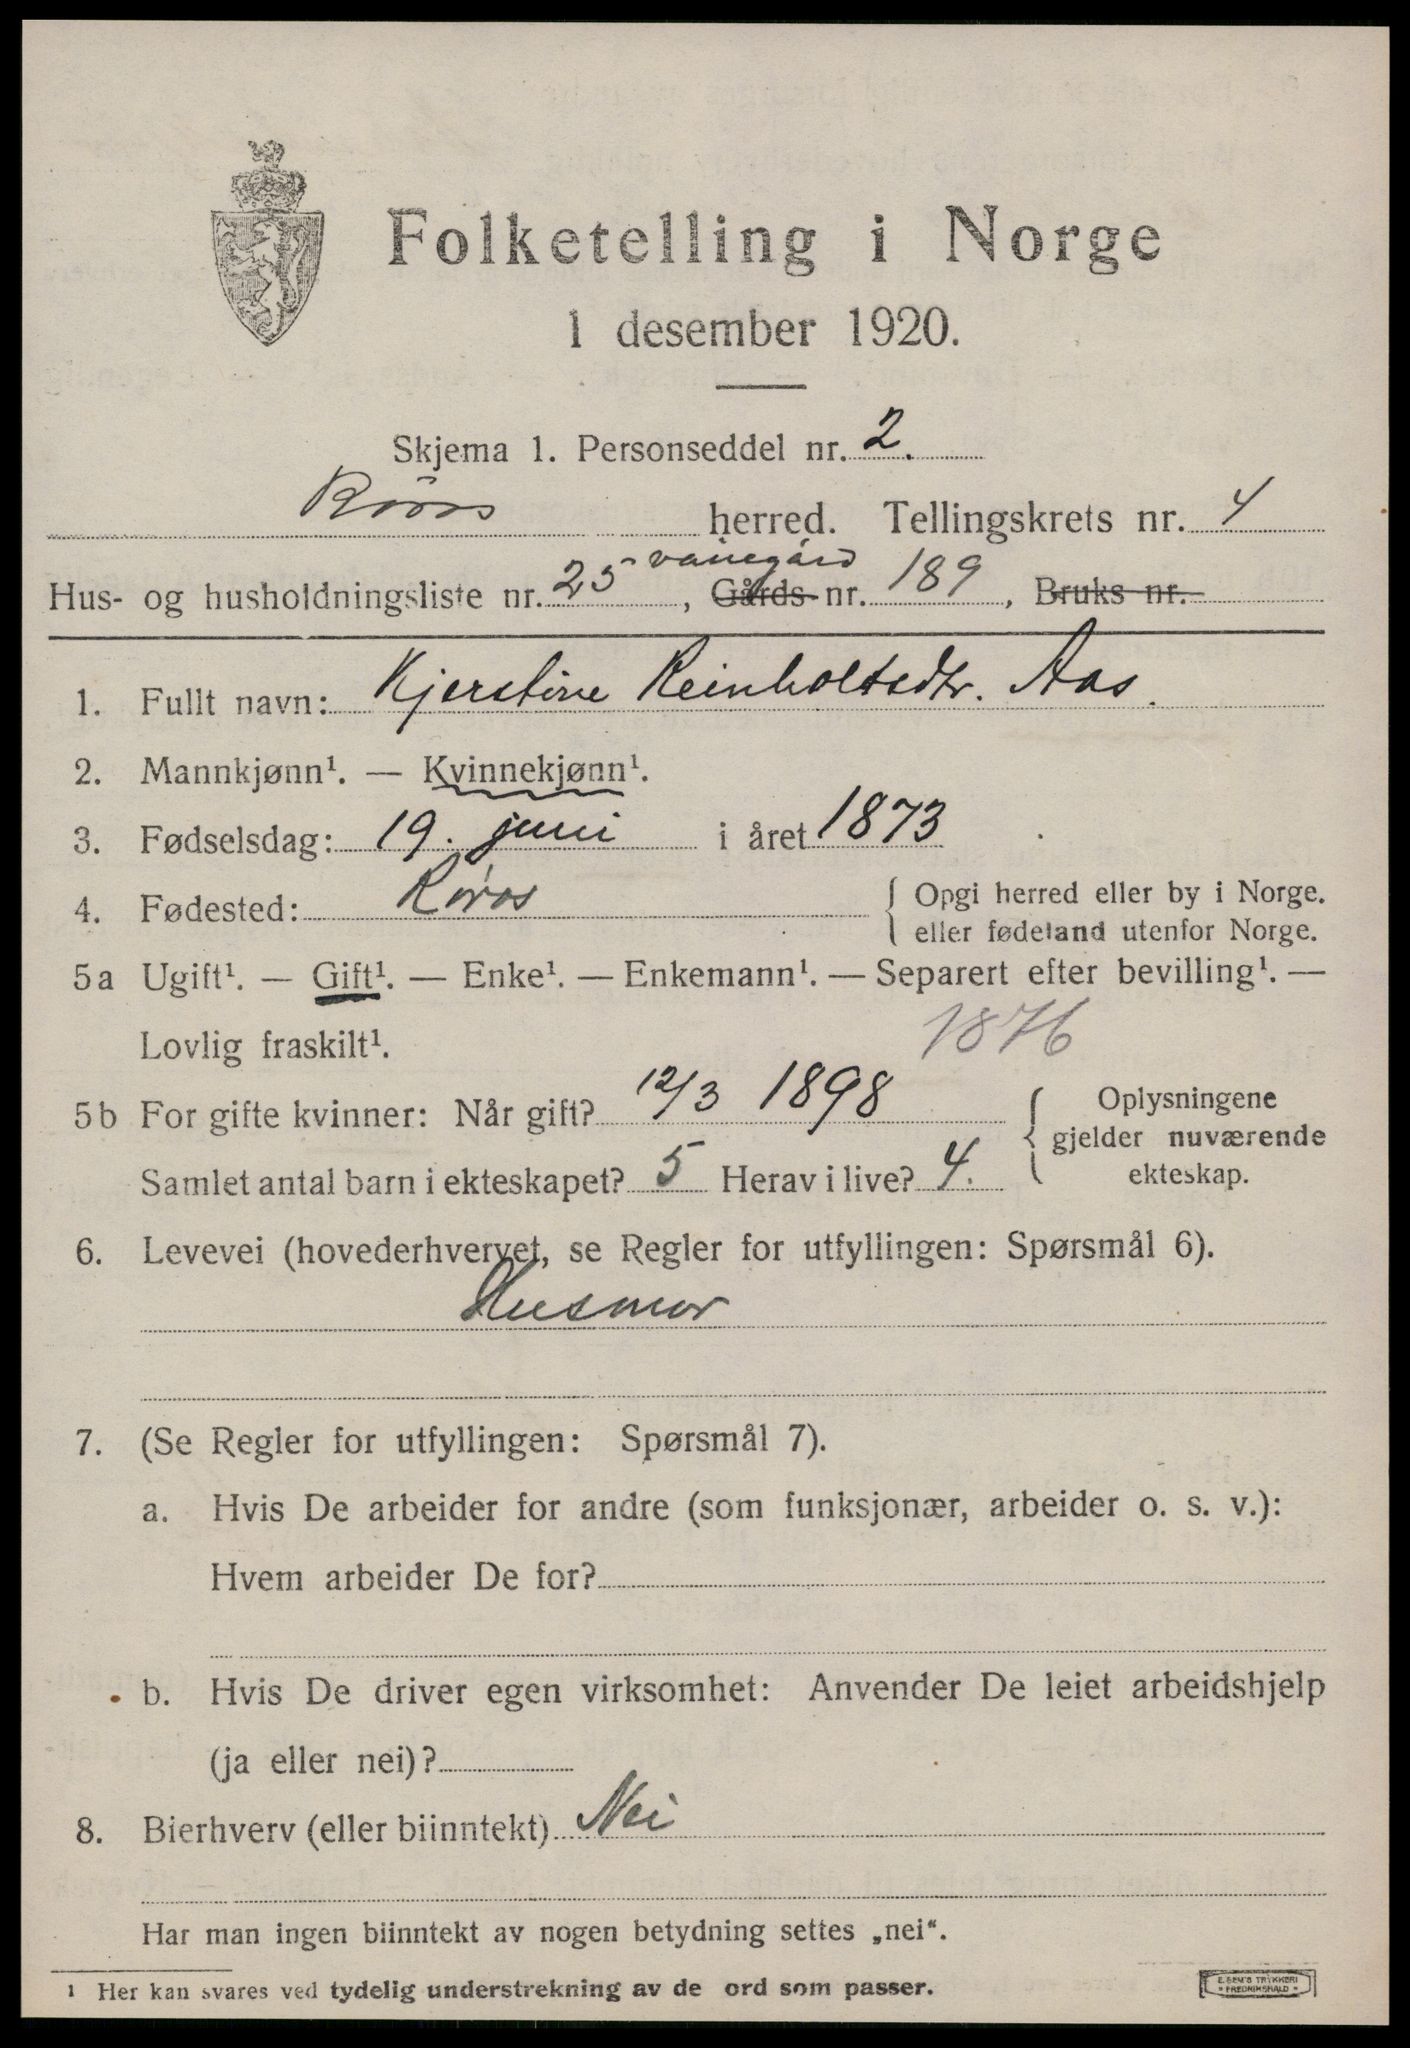 Folketelling i Norge
1 desember 1920.
Skjema 1. Personseddel nr. 2.
Röros herred. Tellingskrets nr. 4
Hus- og husholdningsliste nr. 25, Gårds- nr. 189, Bruks nr.
1. Fullt navn: Kjerstine Reinholtsdtr. Aas.
2. Mannkjønn¹. — Kvinnekjønn¹.
3. Fødselsdag: 19. juni i året 1873
4. Fødested: Røros { Opgi herred eller by i Norge.
eller fødeland utenfor Norge.
5a Ugift¹. — Gift¹. — Enke¹. — Enkemann¹. — Separert efter bevilling¹. —
Lovlig fraskilt¹. 1876
5b For gifte kvinner: Når gift? 12/3 1898 { Oplysningene
gjelder nuværende
Samlet antal barn i ekteskapet? 5 Herav i live? 4. ekteskap.
6. Levevei (hovederhvervet, se Regler for utfyllingen: Spørsmål 6).
Husmor
7. (Se Regler for utfyllingen: Spørsmål 7).
a. Hvis De arbeider for andre (som funksjonær, arbeider o. s. v.):
Hvem arbeider De for?
b. Hvis De driver egen virksomhet: Anvender De leiet arbeidshjelp
(ja eller nei)?
8. Bierhverv (eller biinntekt) Nei
Har man ingen biinntekt av nogen betydning settes „nei“.
¹ Her kan svares ved tydelig understrekning av de ord som passer.
E. SEM'S TRYKKERI
* FREDRIKSHALD *